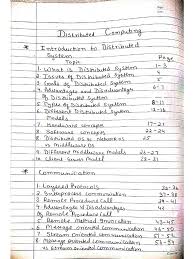 Distributed Computing
* Introduction to Distributed
System
Topic Page
1. What is Distributed System 1-3
2. Issues of Distributed System 4
3. Goals of Distributed System
4. Advantages and Disadvantages 6-7
Of Distributed System
5. Types of Distributed System 8-11
6. Different Distributed System 12-16
Models
7. Hardware concepts 17-21
8. Software concepts 22-24
9. Distributed OS vs Network OS
vs Middleware OS
10. Different Middleware Models
11. Client Server Model
* Communication
1. Layered Protocols
2. Interprocess Communication
3. Remote Procedure Call
4. Advantages & Disadvantages
Of Remote Procedure Call
5. Remote Method Invocation 43-45
6. Message oriented Communication
7. Stream Oriented Communication
8. Message oriented communication
vs Stream oriented